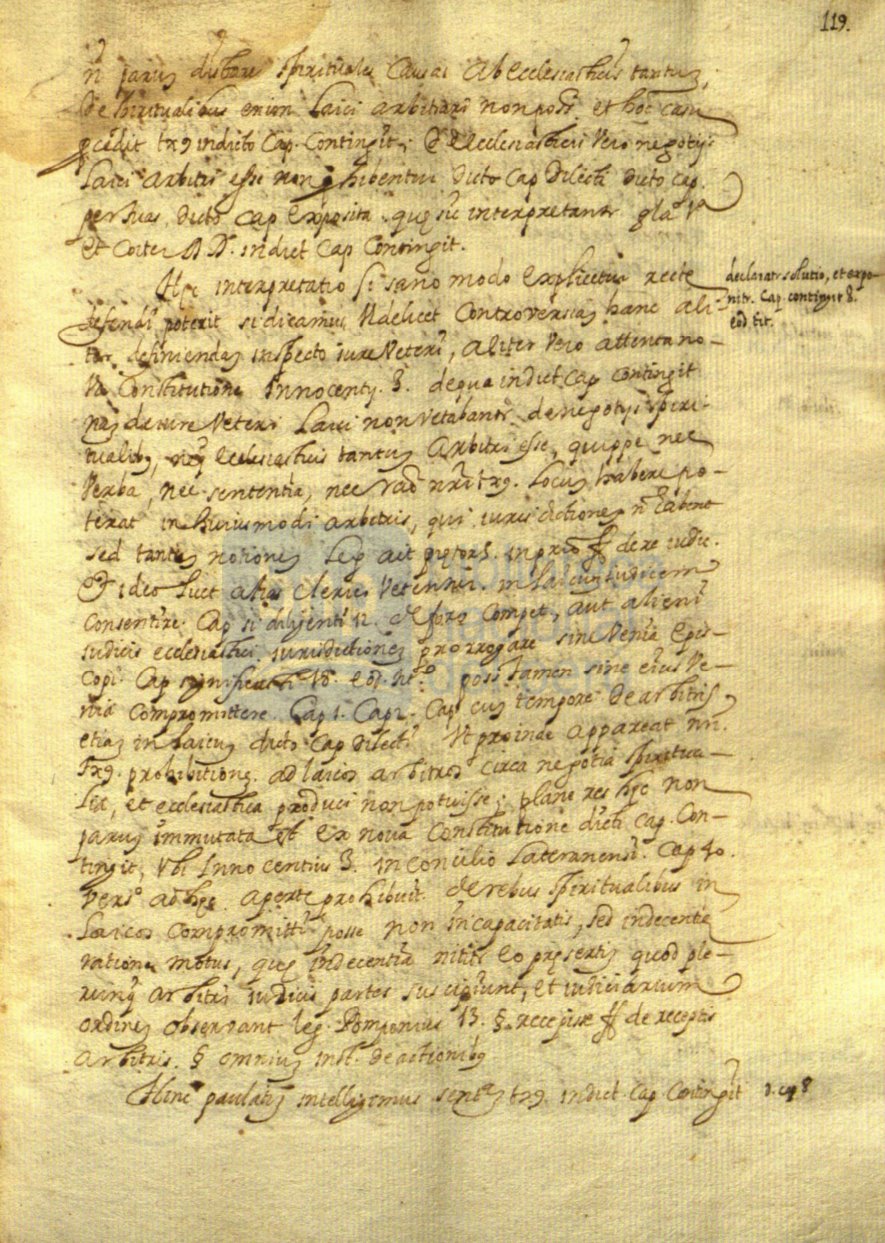 119.
n̄ parum distare spirituales causas ab ecclesiasticis tantum,
de spiritualibus enim Laici arbitrari non possūt et hoc casu
procedit txg in dicto Cap. Contingit, de ecclesiasticis vero negotijs
Laici arbitri esse non prohibentur dicto Cap Dilecti dicto cap.
per tuas, dicto cap exposita. quę sic interpretantr gla vª
et coīter D D. in dict Cap Contingit.
Hęc interpretatio si sano modo explicetur recte
defendi poterit si dicamus Videlicet Controversiam hanc ali
ter definiendam inspecto iure Veteri, aliter vero attenta no-
va Constitutione Innocentij. 3. de qua in dict Cap Contingit
nam de iure Veteri Laici non vetabantr de negotijs spiri-
tualibq, ecclesiasticis tantum Arbitri esse, quippe nec
verba, nec sententia, nec raō nr̄i txg. Locum habere po-
terat in huiusmodi arbitris, qui iurisdictionem n̄ habent
sed tantum notionem Leg ait prętor 5. in prīo ff de re iudic.
Et ideo licet alias clerici vetentur in Laicum iudicem
consentire Cap si diligenti 12. de foro Compet, aut alieni
iudicis ecclesiastici iurisdictionem prorrogare sine venia Epis-
copi. Cap significasti 18. eod. tit.º possūt tamen sine eius ve-
nia compromittere Cap 1. Cap 2. Cap cum tempore de arbitris,
etiam in Laicum dicto Cap Dilecti Vt proinde appareat nr̄i.
txg. prohibitionem ad laicos arbitros circa negotia spiritua-
lia, et ecclesiastica produci non potuisse; plane res hęc non
parum immutata est ex nova Constitutione dicti cap. Con-
tingit, Vbi Innocentius 3. in concilio Lateranensi. Cap 40.
versº ad hęc aperte prohibuit de rebus spiritualibus in
Laicos compromitti posse non incapacitatis, sed indecentię
ratione motus, quę indecentia nititr eo pręsertim quod ple-
runq arbitri iudicis partes suscipiunt, et iudiciarium
ordinem observant leg. Pomponius 13. §. recepisse ff de receptis
arbitris. § omnium inst. de actionibq
Hinc paulatim intelligimus sentª txg. in dict Cap Contingit
declaratr solutio, et expo-
nitr. Cap. contingit 8.
eod tit.
d. cap 8